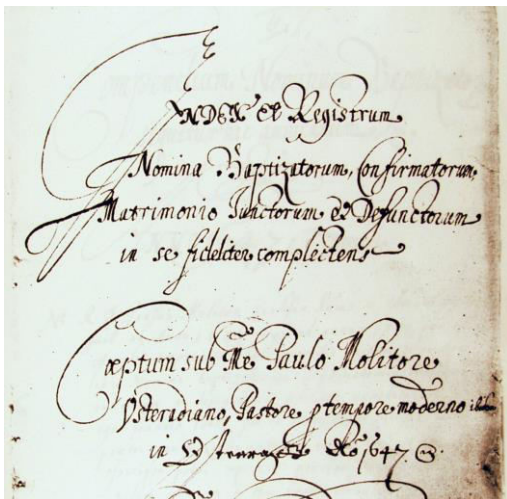 INDEX et Registrum
Nomina Baptizatorum, Confirmatorum,
Matrimonio Junctorum et Defunctorum
in se fideliter complectens
Cœptum sub Me Paulo Molitore
Ysteradiano, Pastore ptempore moderno
in Aō 1647.